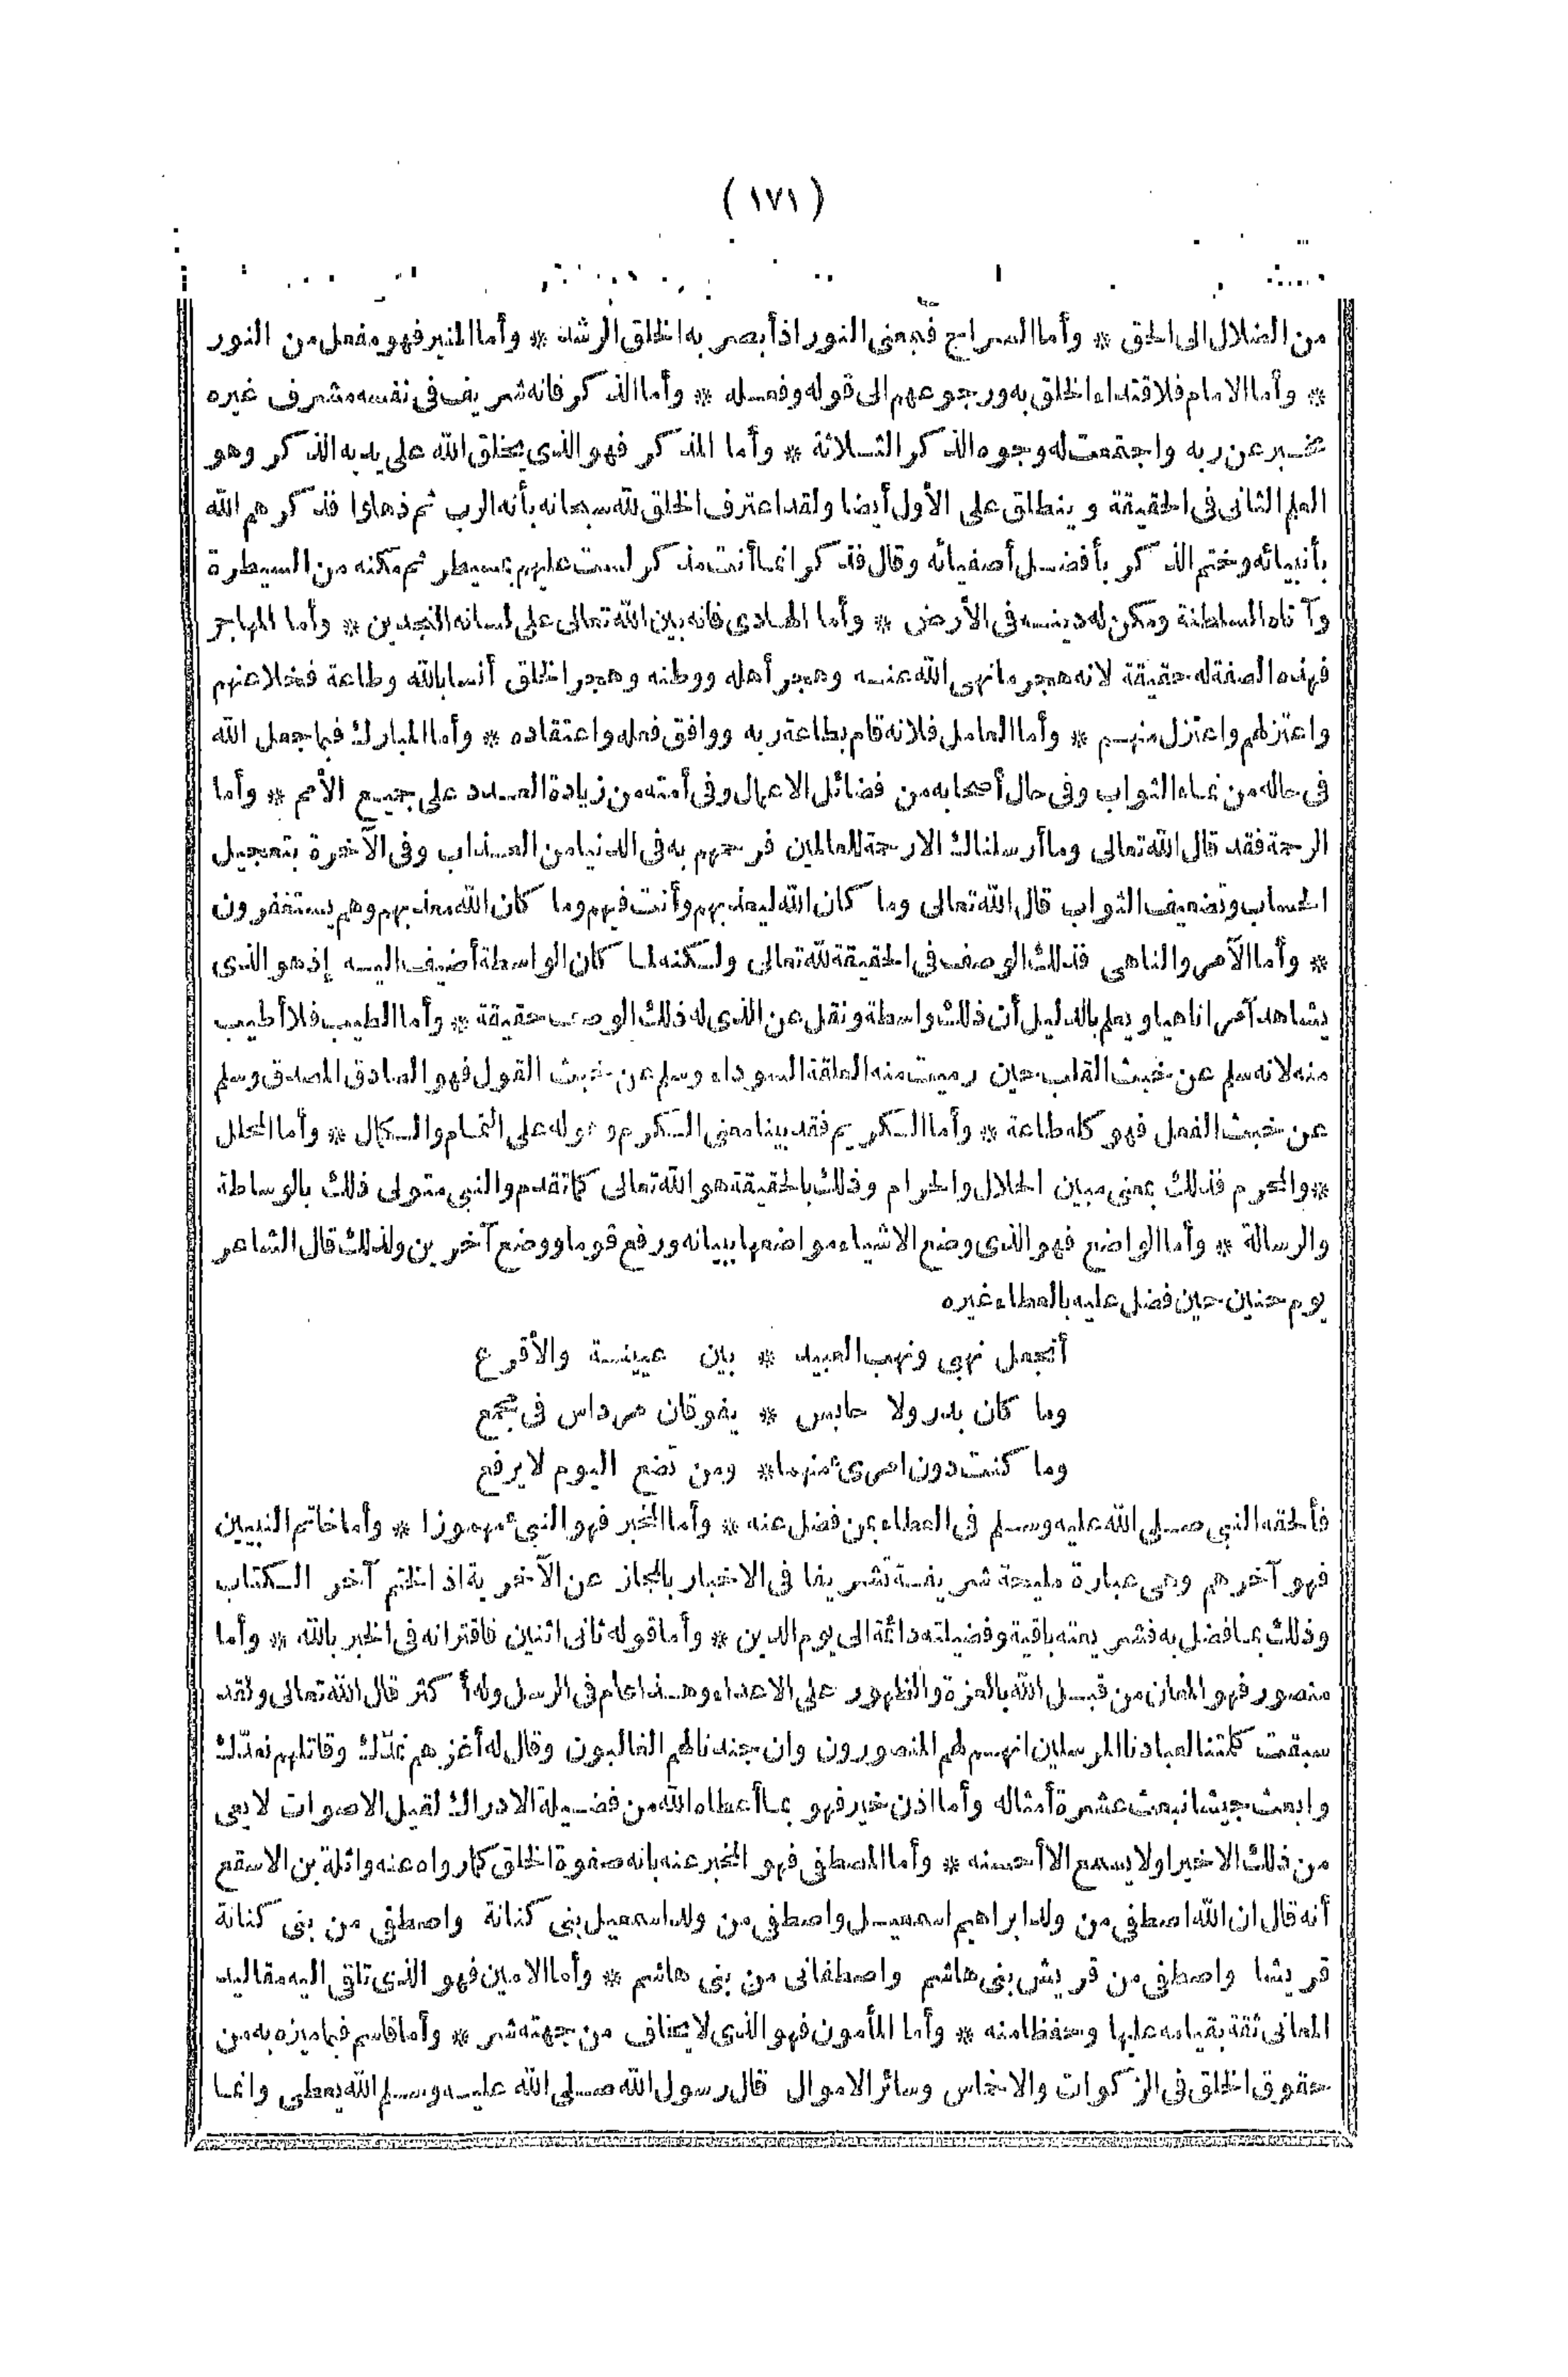 (١٧١)
من الضلال الى الحق * وأما السراج فبمعنى النور اذ أبصر به الخلق الرشد * وأما المنير فهو مفعل من النور
* وأما الامام فلاقتداء الخلق به ورجوعهم الى قوله وفعله * وأما الذكر فانه شريف فى نفسه مشرف غيره
مخبر عن ربه واجتمعت له وجوه الذكر الثلاثة * وأما المذكر فهو الذى يخلق الله على يديه الذكر وهو
العلم الثانى فى الحقيقة وينطلق على الأول أيضا ولقد اعترف الخلق لله سبحانه بأنه الرب ثم ذهلوا فذكرهم الله
بأنبيائه وختم الذكر بأفضل أصفيائه وقال فذكر انما أنت مذكر لست عليهم بمسيطر ثم مكنه من السيطرة
وآتاه السلطنة ومكن له دينه فى الأرض * وأما الهادى فانه بين الله تعالى على لسانه النجدين * وأما المهاجر
فهذه الصفة له حقيقة لانه هجر ما نهى الله عنه وهجر أهله ووطنه وهجر الخلق أنسا بالله وطاعة فخلا عنهم
واعتزلهم واعتزل منهم * وأما العامل فلانه قام بطاعة ربه ووافق فعله واعتقاده * وأما المبارك فبما جعل الله
فى حاله من نماء الثواب وفى حال أصحابه من فضائل الاعمال وفى أمته من زيادة العدد على جميع الأمم * وأما
الرحمة فقد قال الله تعالى وما أرسلناك الا رحمة للعالمين فرحمهم به فى الدنيا من العذاب وفى الآخرة بتعجيل
الحساب وتضعيف الثواب قال الله تعالى وما كان الله ليعذبهم وأنت فيهم وما كان الله معذبهم وهم يستغفرون
* وأما الآمر والناهى فذلك الوصف فى الحقيقة لله تعالى ولكنه لما كان الواسطة أضيف اليه إذ هو الذى
يشاهد آمرا ناهيا ويعلم بالدليل أن ذلك واسطة ونقل عن الذى له ذلك الوصف حقيقة * وأما الطيب فلا أطيب
منه لانه سلم عن خبث القلب حين رميت منه العلقة السوداء وسلم عن خبث القول فهو الصادق المصدق وسلم
عن خبث الفعل فهو كله طاعة * وأما الكريم فقد بينا معنى الكرم وهو له على التمام والكمال * وأما المحلل
* والمحرم فذلك بمعنى مبين الحلال والحرام وذلك بالحقيقة هو الله تعالى كما تقدم والنبى متولى ذلك بالوساطة
والرسالة * وأما الواضع فهو الذى وضع الاشياء مواضعها ببيانه ورفع قوما ووضع آخرين ولذلك قال الشاعر
يوم حنين حين فضل عليه بالعطاء غيره
أتجعل نهبى ونهب العبيد * بين عيينة والأقرع
وما كان بدر ولا حابس * يفوقان مرداس فى مجمع
وما كنت دون امرئ منهما * ومن تضع اليوم لا يرفع
فألحقه النبى صلى الله عليه وسلم فى العطاء بمن فضل عنه * وأما المخبر فهو النبئ مهموزا * وأما خاتم النبيين
فهو آخرهم وهى عبارة مليحة شريفة تشريفا فى الاخبار بالمجاز عن الآخرية اذ الختم آخر الكتاب
وذلك بما فضل به فشريعته باقية وفضيلته دائمة الى يوم الدين * وأما قوله ثانى اثنين فاقترانه فى الخبر بالله * وأما
منصور فهو المعان من قبل الله بالعزة والظهور على الاعداء وهذا عام فى الرسل وله أكثر قال الله تعالى ولقد
سبقت كلمتنا لعبادنا المرسلين انهم لهم المنصورون وان جندنا لهم الغالبون وقال له أغزهم نمدك وقاتلهم نعدك
وابعث جيشا نبعث عشرة أمثاله وأما اذن خير فهو بما أعطاه الله من فضيلة الادراك لقيل الاصوات لا يعى
من ذلك الا خيرا ولا يسمع الا أحسنه * وأما المصطفى فهو المخبر عنه بانه صفوة الخلق كما رواه عنه واثلة بن الاسقع
أنه قال ان الله اصطفى من ولد ابراهيم اسمعيل واصطفى من ولد اسمعيل بنى كنانة واصطفى من بنى كنانة
قريشا واصطفى من قريش بنى هاشم واصطفانى من بنى هاشم * وأما الامين فهو الذى تلقى اليه مقاليد
المعانى ثقة بقيامه عليها وحفظا منه * وأما المأمون فهو الذى لا يخاف من جهته شر * وأما قاسم فبما ميزه به من
حقوق الخلق فى الزكوات والاخماس وسائر الاموال قال رسول الله صلى الله عليه وسلم الله يعطى وانما